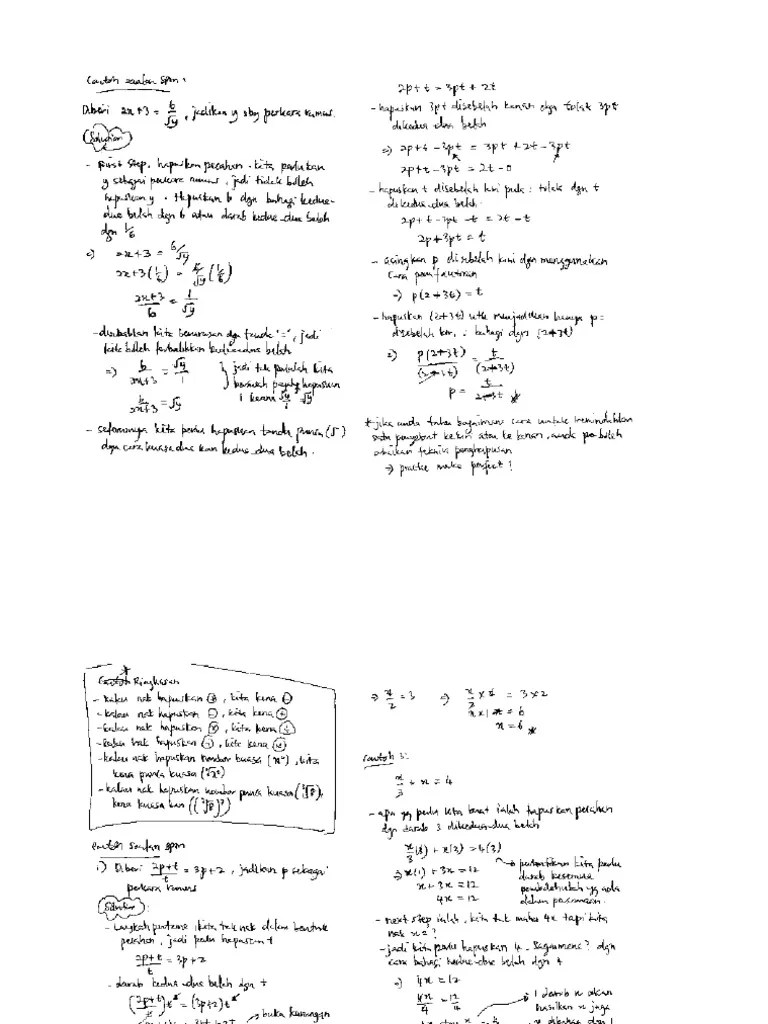 Contoh soalan spm :
Diberi 2x+3 = 6/√y , jadikan y sbg perkara rumus.
Solution
- First step, hapuskan pecahan. Kita perlukan
y sebagai perkara rumus, jadi tidak boleh
hapuskan y. Hapuskan 6 dgn bahagi kedua-
dua belah dgn 6 atau darab kedua-dua belah
dgn 1/6
2x+3 = 6/√y
2x+3 (1/6) = 6/√y (1/6)
2x+3/6 = 1/√y
kita boleh terbalikkan kedua-dua belah
=> 6/2x+3 = √y/1
6/2x+3 = √y
} jadi tak perlulah kita
1 kerana √y/1 = √y
- seterusnya kita perlu hapuskan tanda punca (√)
dgn cara kuasa dua kan kedua-dua belah.
2p+t = 3pt + 2t
- hapuskan 3pt disebelah kanan dgn tolak 3pt
dikedua-dua belah
=> 2p+t-3pt = 3pt + 2t - 3pt
2p+t-3pt = 2t - 0
- hapuskan t disebelah kiri pula : tolak dgn t
dikedua-dua belah.
2p+t-3pt-t = 2t-t
2p+3pt = t
- asingkan p disebelah kiri dgn menggunakan
cara pemfaktoran
=> p(2+3t) = t
- hapuskan (2+3t) utk menjadikan hanya p=
disebelah kiri, : bahagi dgn (2+3t)
=> p(2+3t)/(2+3t) = t/(2+3t)
p = t/2+3t *
* jika anda tahu bagaimana cara untuk memindahkan
satu pengebut ke kiri atau ke kanan, anda pun boleh
abaikan teknik penghapusan
=> practice make perfect !
Contoh Ringkasan
- kalau nak hapuskan +, kita kena -
- kalau nak hapuskan -, kita kena +
- kalau nak hapuskan ×, kita kena ÷
- kalau nak hapuskan ÷, kita kena ×
- kalau nak hapuskan nombor kuasa (x²), kita
kena punca kuasa (²√x²)
- kalau nak hapuskan nombor punca kuasa
kena kuasa kan
contoh soalan spm
1) Diberi 2p+t/t = 3p+2, jadikan p sebagai
perkara rumus
Solution :
- Langkah pertama, kita tak nak dalam bentuk
pecahan, jadi perlu hapuskan t
2p+t/t = 3p+2
- darab kedua-dua belah dgn t
(2p+t/t)t = (3p+2)t
buka kurungan
=> x/2 = 3 => x/2 × 2 = 3×2
x × 1 = 6
x = 6 *
Contoh 3:
x/3 + x = 4
- apa yg perlu kita buat ialah hapuskan pecahan
dgn darab 3 dikedua-dua belah
x/3 (3) + x(3) = 4(3)
=> x(1) + 3x = 12
x + 3x = 12
4x = 12
perhatikan kita perlu
darab kesemua
yg ada
dalam persamaan.
- next step ialah, kita tak mahu 4x tapi kita
nak x = ?
- jadi kita perlu hapuskan 4. Bagaimana? dgn
cara bahagi kedua-dua belah dgn 4
=> 4x = 12
4x/4 = 12/4
1 darab x akan
hasilkan x juga